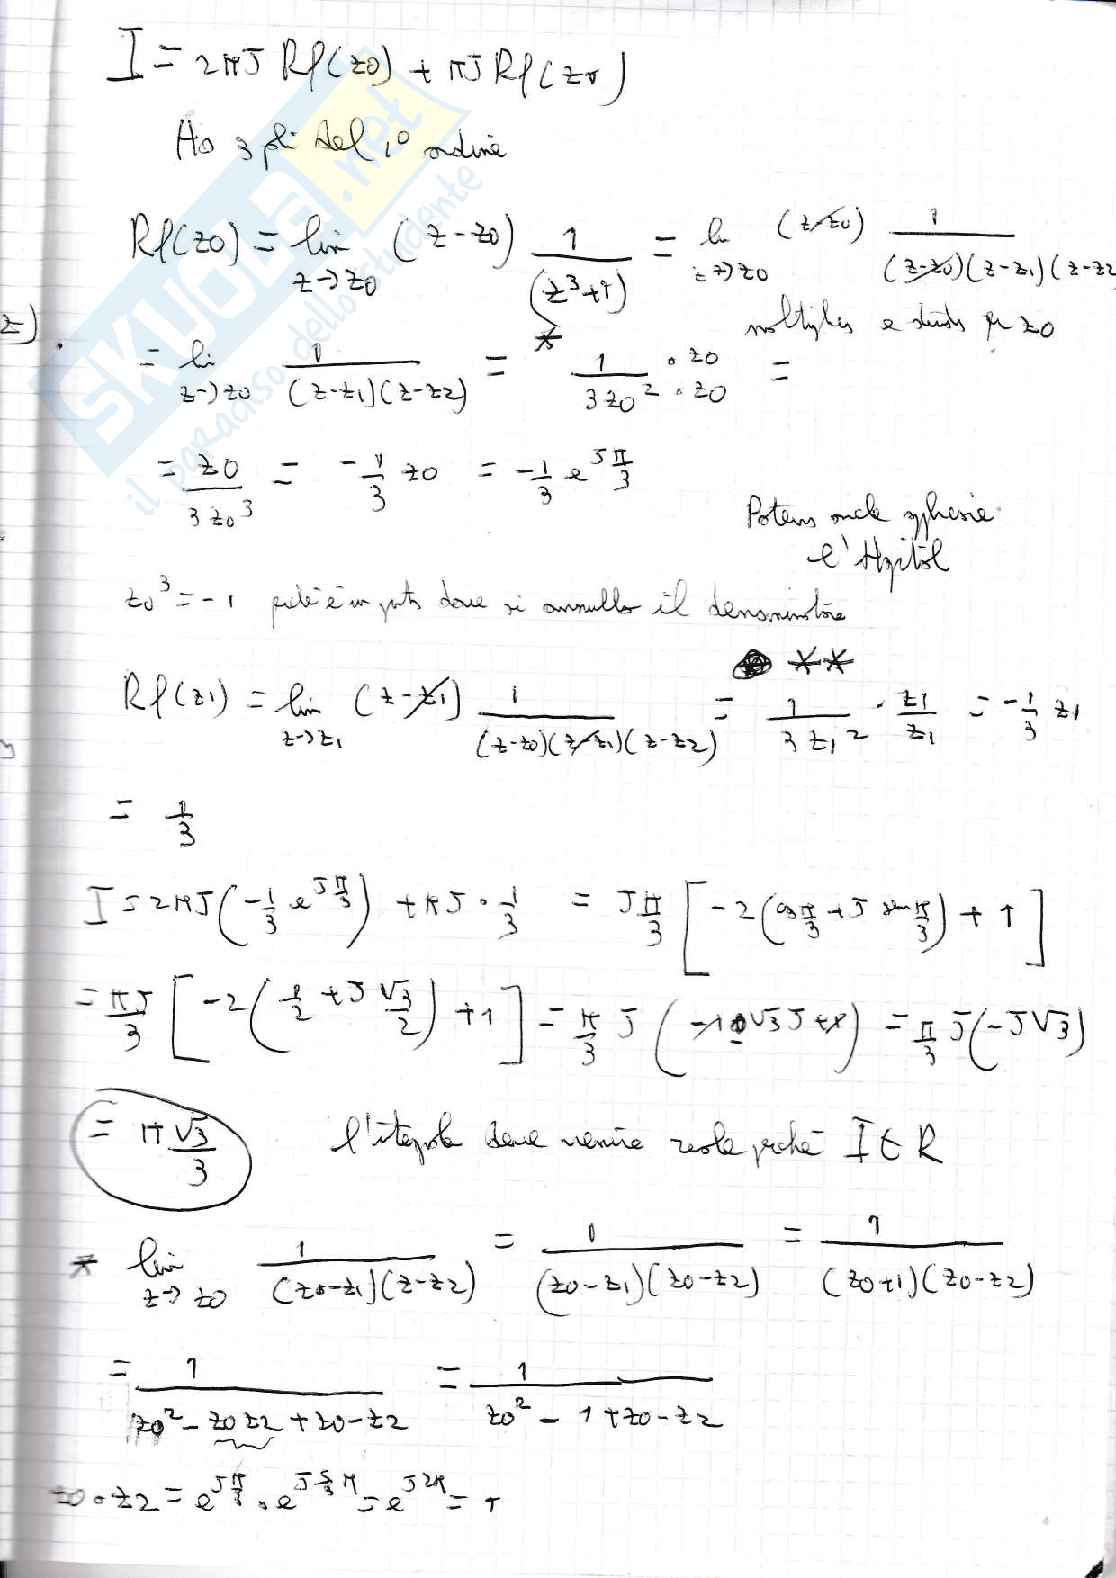 I = 2πJ Rf(z0) + πJ Rf(z1)
Ho 3 poli del 1° ordine
Rf(z0) = lim z→z0 (z-z0) 1/(z³+1) = lim z→z0 (z-z0) 1/((z-z0)(z-z1)(z-z2
*
z).
moltiplico e divido per z0
= lim z→z0 1/((z-z1)(z-z2)) = 1/(3z0²) · z0/z0 =
= z0/(3z0³) = -1/3 z0 = -1/3 e^(Jπ/3)
Potevo anche applicare
l'Hopital
z0³ = -1 perché è un punto dove si annulla il denominatore
**
Rf(z1) = lim z→z1 (z-z1) 1/((z-z0)(z-z1)(z-z2)) = 1/(3z1²) · z1/z1 = -1/3 z1
= 1/3
I = 2πJ(-1/3 e^(Jπ/3)) + πJ · 1/3 = Jπ/3 [-2(cos π/3 + J sen π/3) + 1]
= πJ/3 [-2(1/2 + J √3/2) + 1] = π/3 J (-1-√3J+1) = π/3 J(-J√3)
= π√3/3 l'integrale deve venire reale perché I ∈ R
* lim z→z0 1/((z0-z1)(z-z2)) = 1/((z0-z1)(z0-z2)) = 1/((z0+1)(z0-z2))
= 1/(z0²-z0z2+z0-z2) = 1/(z0²-1+z0-z2)
z0·z2 = e^(Jπ/3) · e^(J5/3π) = e^(J2π) = 1
SKUOLA.net
il paradiso dello studente